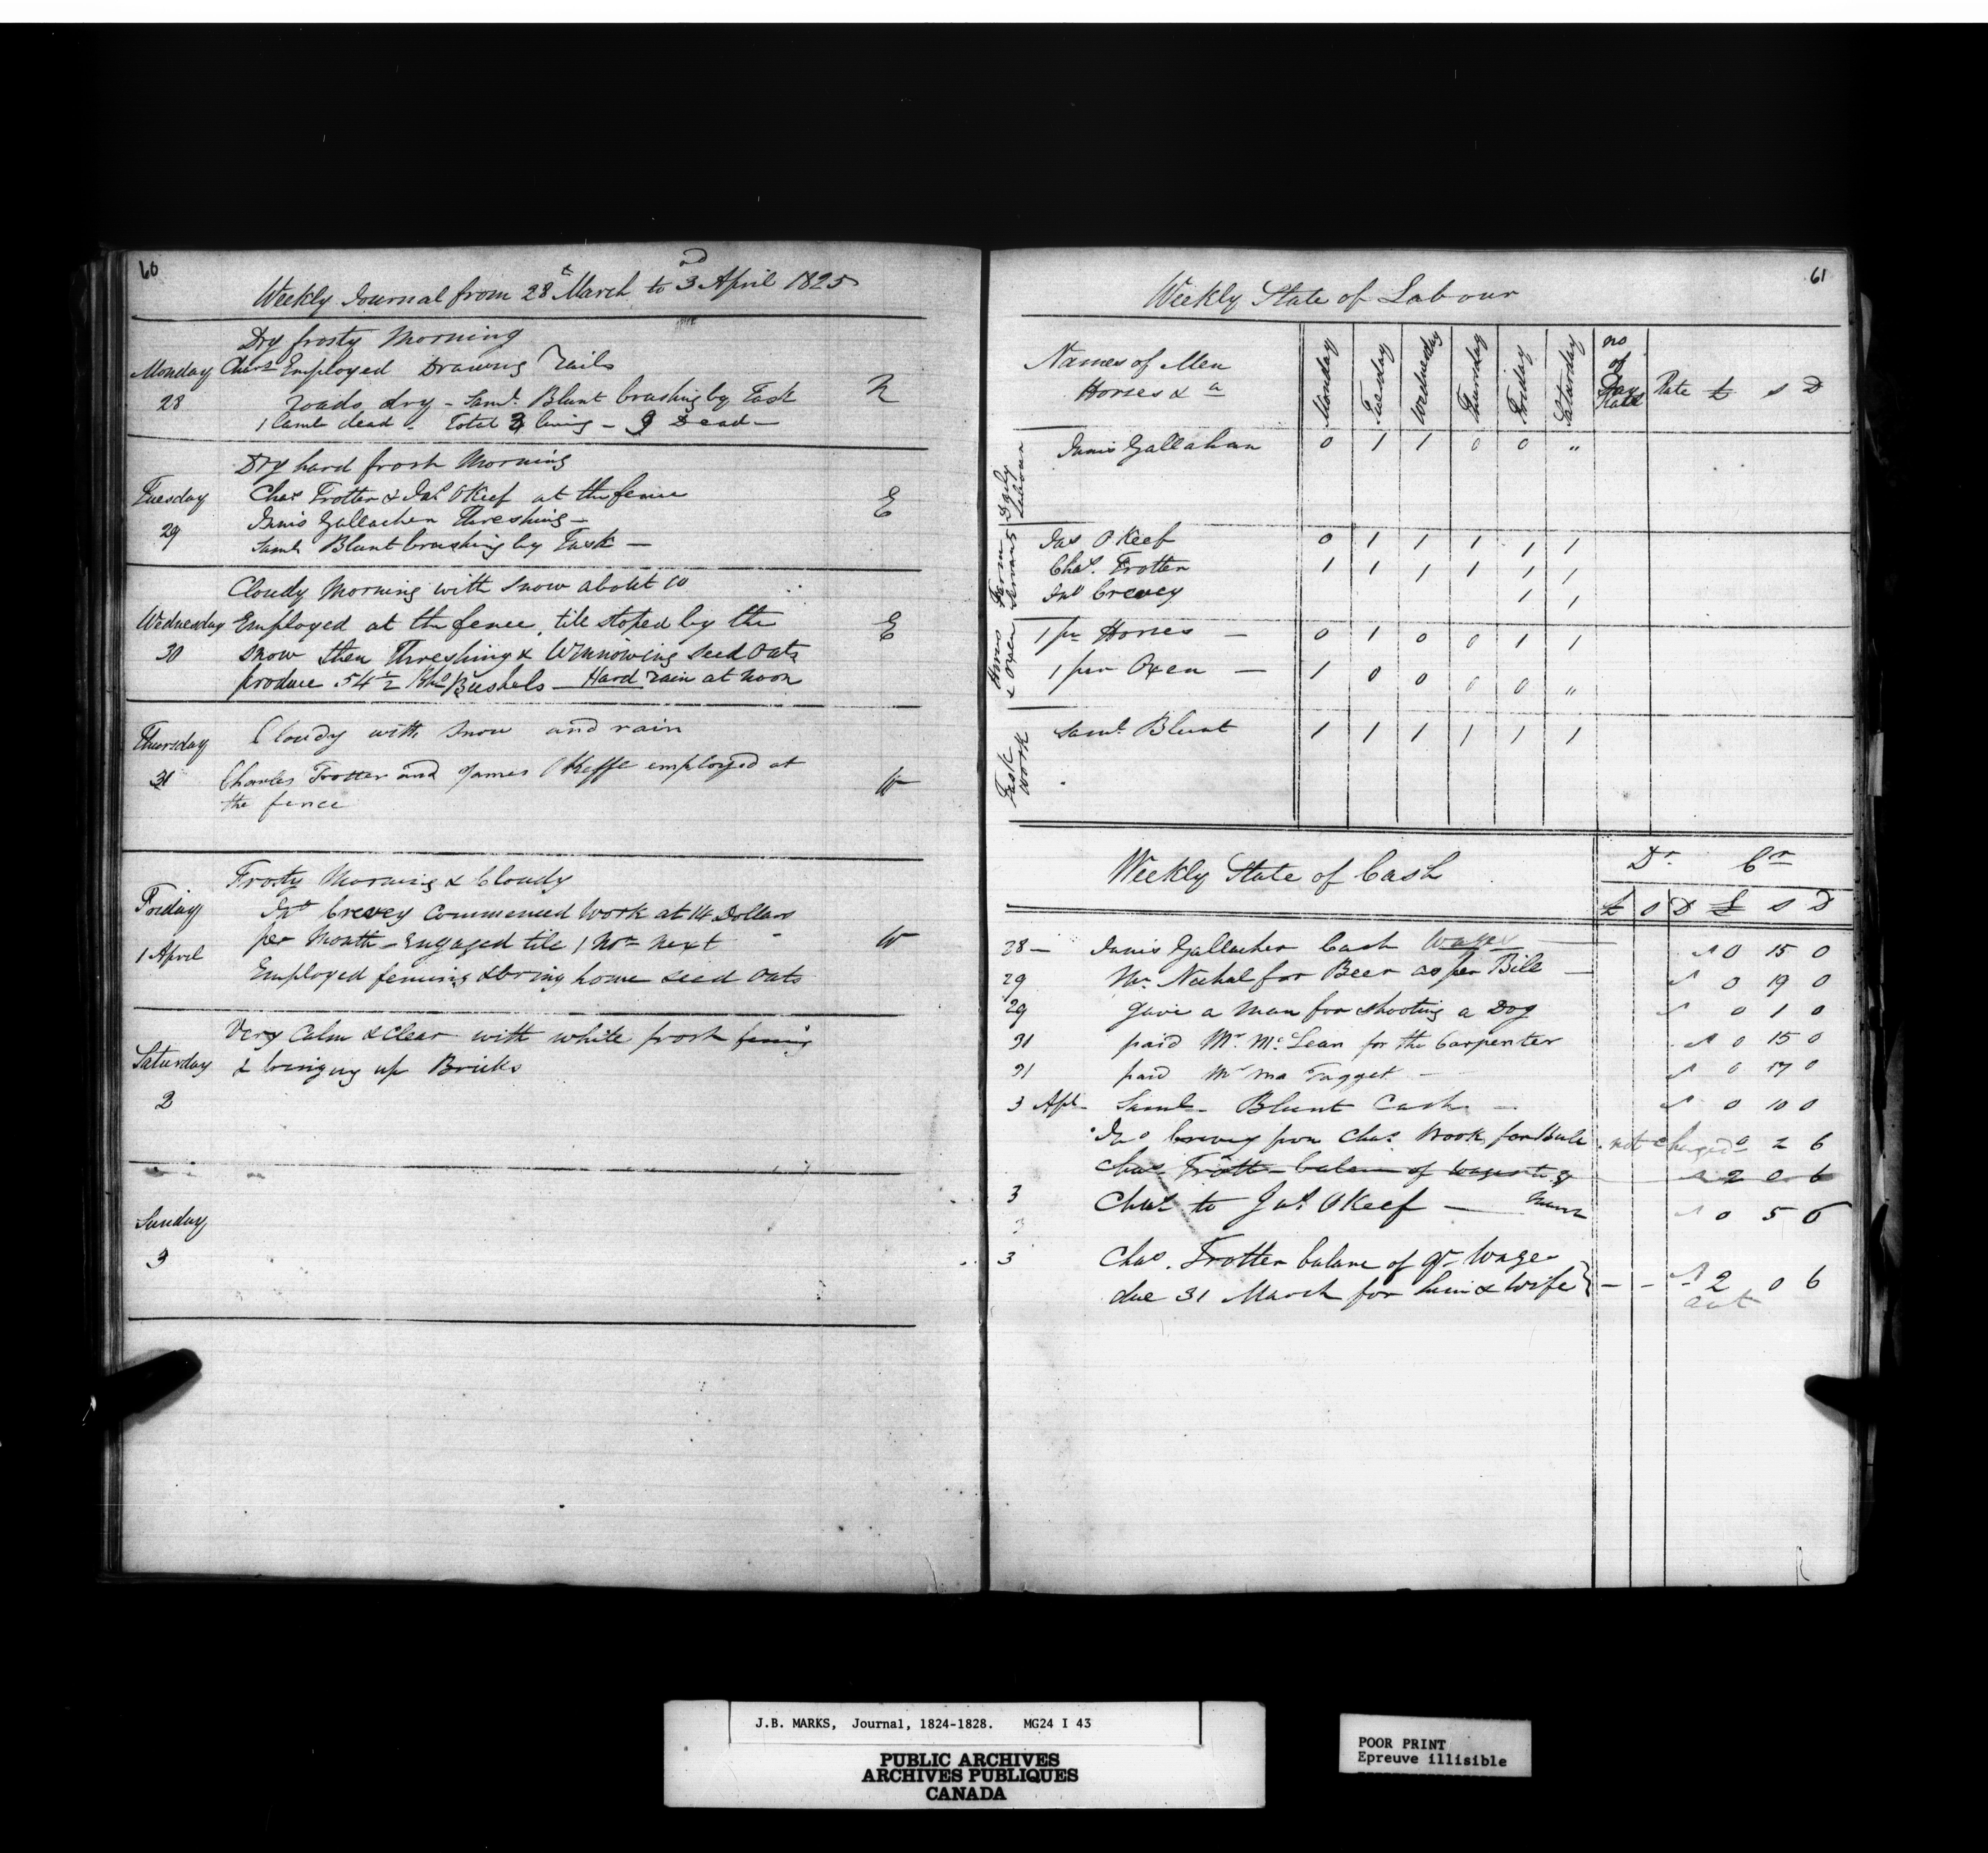 60
Weekly Journal from 28th March to 3rd April 1825
Dry frosty Morning
Monday Chas Employed Drawing rails
28 roads dry - Saml. Blunt brushing by Task N
1 lamb dead - Total 3 living - 9 Dead -
Dry hard frost Morning
Tuesday Chas Trotter & Jas OKeef at the fence E
29 Innis Gallacher Threshing -
Saml Blunt brushing by Task -
Cloudy Morning with snow about 10
Wednesday Employed at the fence, till stoped by the E
30 snow then Threshing & Winnowing seed Oats
produce 54 1/2 Bushels - Hard rain at noon
Thursday Cloudy with snow and rain
31 Charles Trotter and James OKeffe employed at W
the fence
Frosty Morning & Cloudy
Friday Jno Crevey Commenced Work at 14 Dollars
per Month - engaged till 1 Nov next W
1 April Employed fencing & bring home seed Oats
Very Calm & Clear with white frost fencing
Saturday & bringing up Bricks
2
Sunday
3
61
Weekly State of Labour
Names of Men Horses & a Monday Tuesday Wednesday Thursday Friday Saturday no of Days Rate £ s D
Daily Labour
Innis Gallahan 0 1 1 0 0 "
Farm Servants
Jas OKeef 0 1 1 1 1 1
Chas. Trotter 1 1 1 1 1 1
Jno Crevey 1 1
Horses & Oxen
1 pr Horses - 0 1 0 0 1 1
1 pair Oxen - 1 0 0 0 0 "
Task Work
Saml. Blunt 1 1 1 1 1 1
Weekly State of Cash Dr. Cr
£ s D £ s D
28 - Innis Gallacher Cash Wages - 0 15 0
29 Mr. for Beer as per Bill - 0 19 0
29 gave a Man for shooting a Dog 0 1 0
31 paid Mr. McLean for the Carpenter 0 15 0
31 paid Mr Ma Tagget - 0 17 0
3 Apl - Saml - Blunt Cash - 0 10 0
Jno Crevey from Chas. not charged 0 2 6
Chas Trotter balance of wages to 31 2 0 6
March
3 Chas to Jas OKeef - 0 5 0
3 Chas. Trotter balance of qr Wage
due 31 March for him & Wife } - - 2 0 6
J.B. MARKS, Journal, 1824-1828. MG24 I 43
PUBLIC ARCHIVES
ARCHIVES PUBLIQUES
CANADA
POOR PRINT
Epreuve illisible